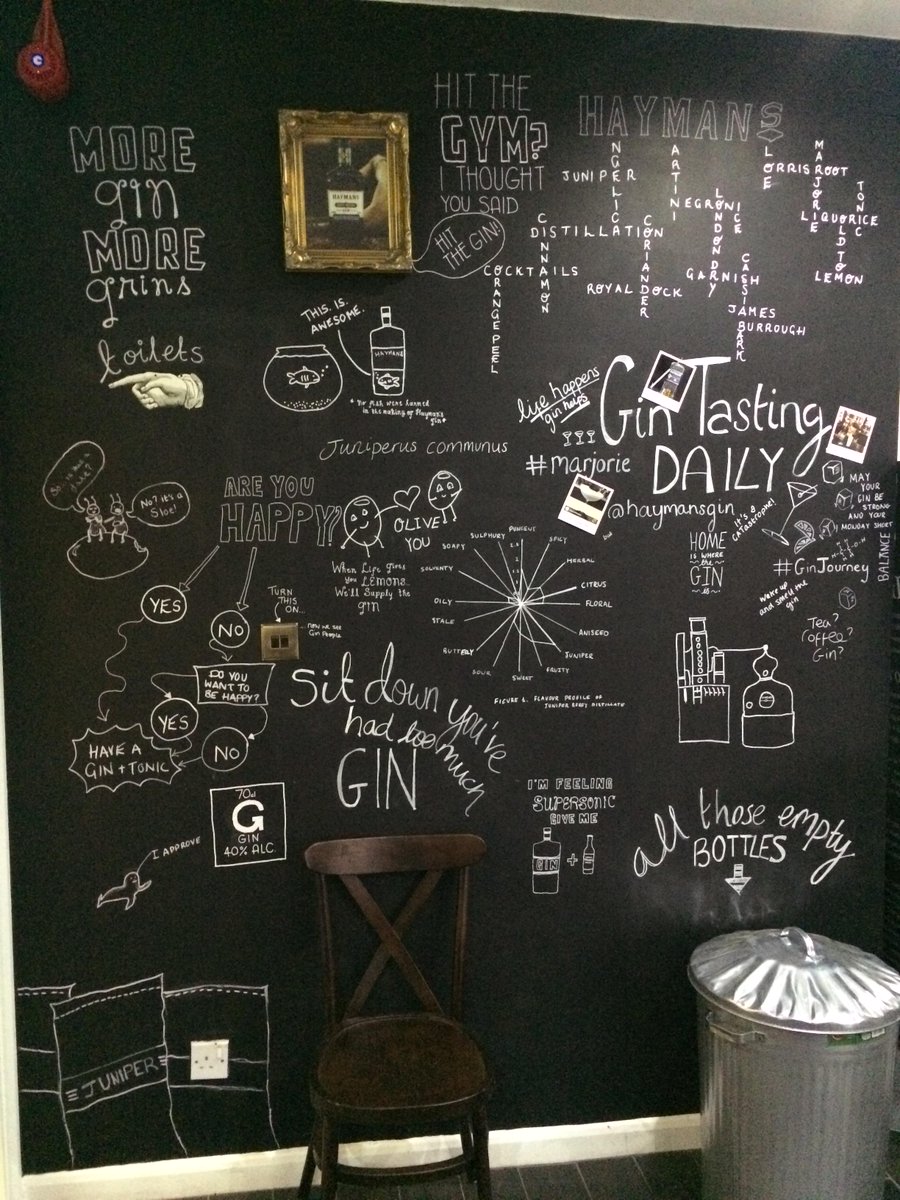 MORE
gin
MORE
grins
toilets
HAYMANS
HIT THE
GYM?
I THOUGHT
YOU SAID
HIT
THE GIN!
HAYMANS
ANGELICA
MARTINI
LORRE
MARJORIE
JUNIPER
ORRISROOT
TONIC
NEGRONI
LONDON DRY
ICE
LIQUORICE
OLD TOM
CINNAMON
DISTILLATION
CORIANDER
COCKTAILS
CASSIA BARK
GARNISH
LEMON
ORANGE PEEL
ROYAL DOCK
JAMES
BURROUGH
THIS. IS.
AWESOME.
HAYMANS
* No fish were harmed
in the making of Hayman's
gin *
life happens
gin helps
Gin Tasting
DAILY
Juniperus communus
#marjorie
@haymansgin
It's a
GATastrophe!
MAY
YOUR
GIN BE
STRONG
AND YOUR
MONDAY SHORT
BALANCE
#GinJourney
HOME
IS WHERE
the
GIN
IS
wake up
and smell the
gin
Tea?
Coffee?
Gin?
No? it's a
Sloe!
ARE YOU
HAPPY?
OLIVE
YOU
When Life Gives
You LEMONS..
We'll Supply the
gin
PUNGENT
SPICY
HERBAL
CITRUS
FLORAL
ANISEED
JUNIPER
FRUITY
SWEET
SOUR
BUTTERY
STALE
OILY
SOLVENTY
SOAPY
SULPHURY
FIGURE 1. FLAVOUR PROFILE OF
JUNIPER BERRY DISTILLATE
YES
NO
TURN
THIS
ON...
...now we see
Gin People
DO YOU
WANT TO
BE HAPPY?
YES
NO
HAVE A
GIN + TONIC
Sit down you've
had too much
GIN
70cl
G
GIN
40% ALC.
I APPROVE
I'M FEELING
SUPERSONIC
GIVE ME
GIN
+
all those empty
BOTTLES
JUNIPER